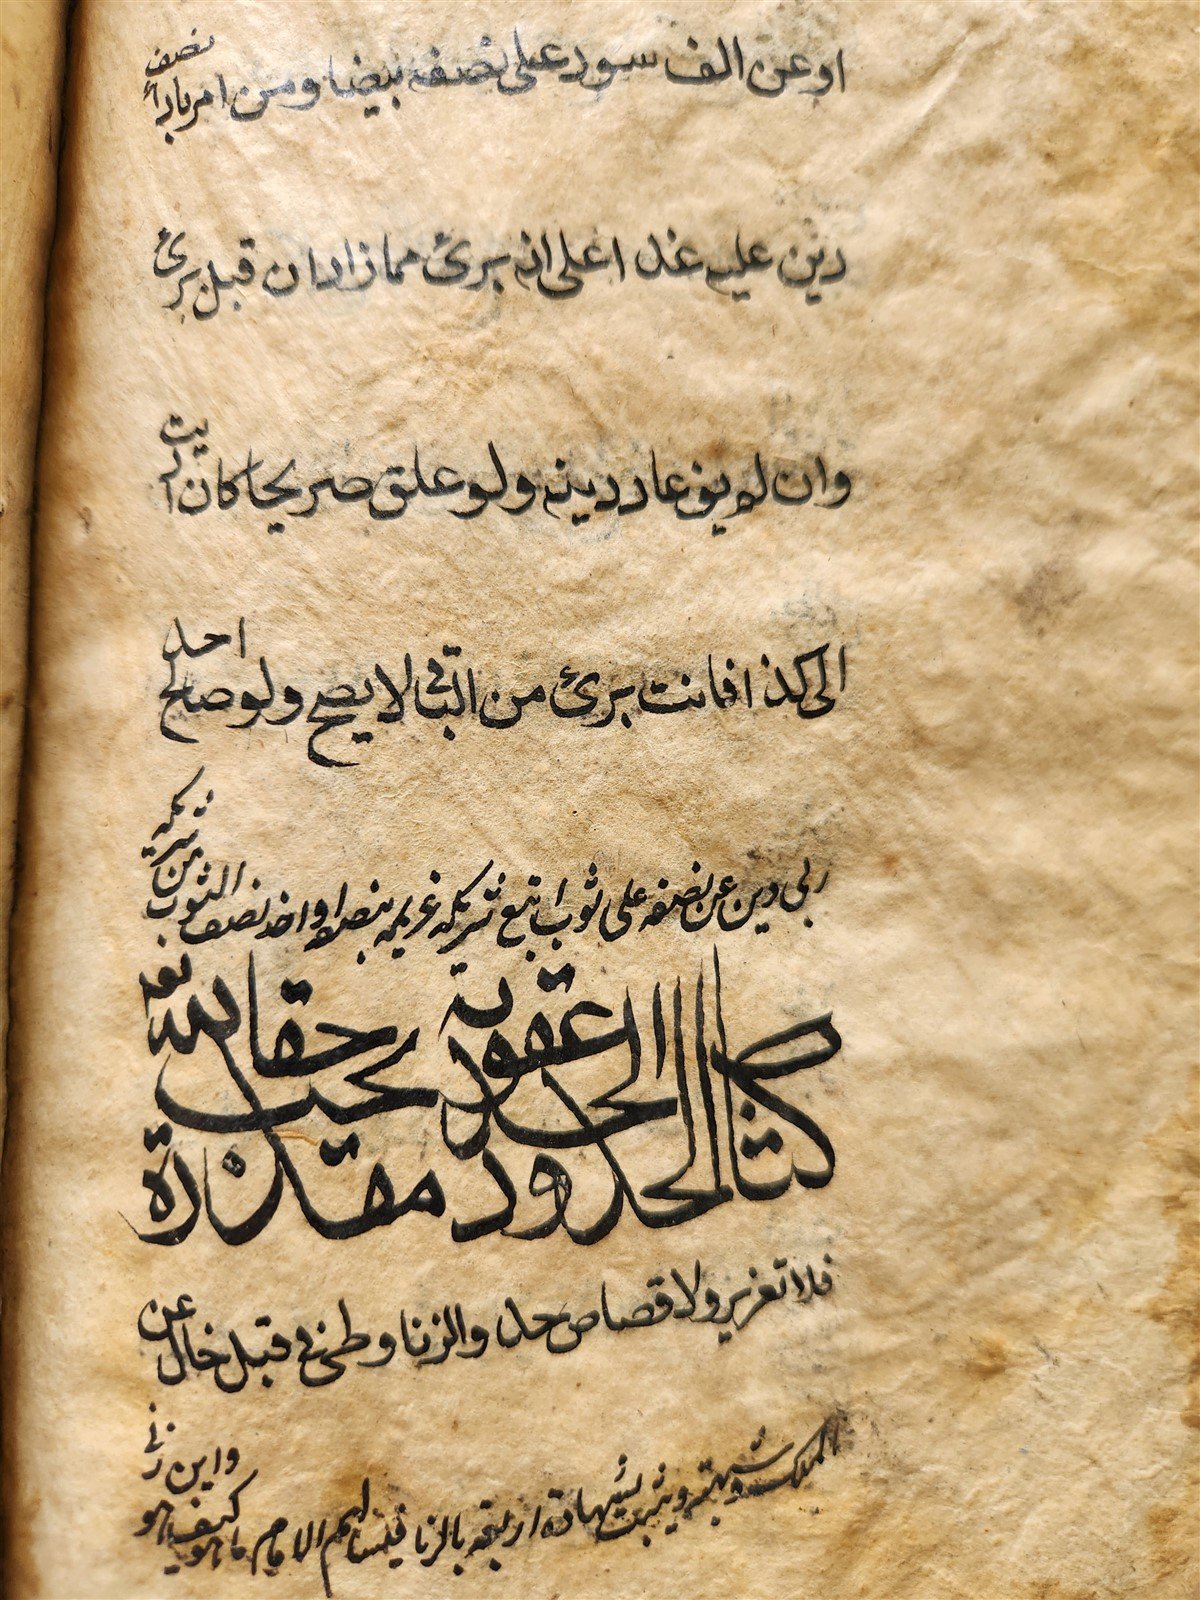 او عن الف سود على نصفه بيضا ومن امر بادأ نصف
دين عليه غدا على انه برئ مما زاد ان قبل برئ
وان لم يف عاد دينه ولو علق صريحا كان اديت
الى كذا فانت برئ من الباقي لا يصح ولو صالح احد
ربي دين عن نصفه على ثوب اتبع شريكه غريمه بنصفه او اخذ نصف الثوب من شريكه
كتاب الحدود الحد عقوبة مقدرة يجب حقا لله تعا
فلا تعزير ولا قصاص حد والزنا وطئ في قبل خال عن
الملك وشبهته ويثبت بشهادة اربعة بالزنا فيسالهم الامام ما هو وكيف هو واين زنى